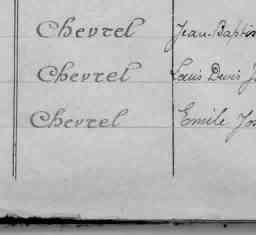 Chevrel Jean Baptis
Chevrel Louis Denis J
Chevrel Emile Jos